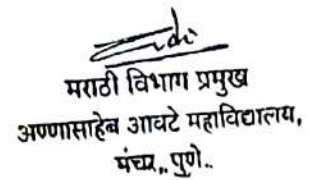 मराठी विभाग प्रमुख
अण्णासाहेब आवटे महाविद्यालय,
मंचर, पुणे..